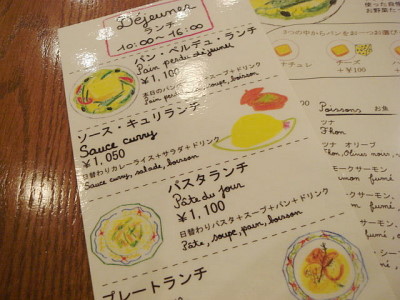 Déjeuner
ランチ
10:00〜16:00
パン・ペルデュ・ランチ
Pain perdu déjeuner
¥1,100
本日のパン
スープ+ドリンク
Pain perdu, soupe, boisson
ソース・キュリランチ
Sauce curry
¥1,050
日替わりカレーライス+サラダ+ドリンク
Sauce curry, salade, boisson
パスタランチ
Pâte du jour
¥1,100
日替わりパスタ+スープ+パン+ドリンク
Pâte, soupe, pain, boisson
プレートランチ
チーズ
+¥100
Poissons お魚
ツナ
Thon
ツナ オリーブ
Thon, Olives noirs,
モークサーモン
umon fumé
モークサーモン、
fumé
サーモン、
fumé